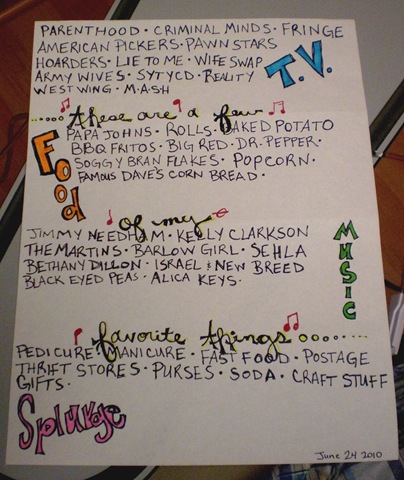 PARENTHOOD · CRIMINAL MINDS · FRINGE
AMERICAN PICKERS · PAWN STARS
HOARDERS · LIE TO ME · WIFE SWAP
ARMY WIVES · SYTYCD · REALITY
WEST WING · M·A·S·H
T.V.
these are a few
PAPA JOHNS · ROLLS · BAKED POTATO
BBQ FRITOS · BIG RED · DR. PEPPER ·
SOGGY BRAN FLAKES · POPCORN ·
FAMOUS DAVE'S CORN BREAD ·
Food
of my
JIMMY NEEDHAM · KELLY CLARKSON
THE MARTINS · BARLOW GIRL · SEHLA
BETHANY DILLON · ISRAEL & NEW BREED
BLACK EYED PEAS · ALICA KEYS ·
MUSIC
favorite things
PEDICURE · MANICURE · FAST FOOD · POSTAGE
THRIFT STORES · PURSES · SODA · CRAFT STUFF
GIFTS ·
Splurge
June 24 2010